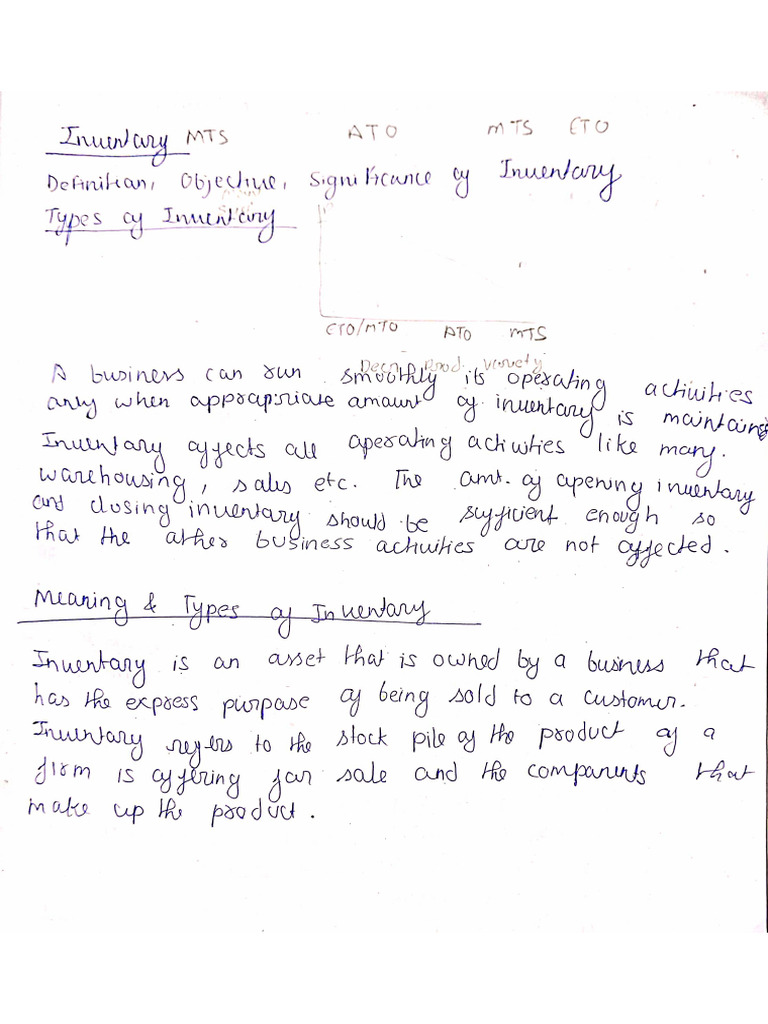 Inventory MTS ATO MTS ETO
Definition, Objective, Significance of Inventory
Types of Inventory
ETO/MTO ATO MTS
Prod. variety
A business can run smoothly its operating activities
only when appropriate amount of inventory is maintained
Inventory affects all operating activities like many.
warehousing, sales etc. The amt. of opening inventory
and closing inventory should be sufficient enough so
that the other business activities are not affected.
Meaning & Types of Inventory
Inventory is an asset that is owned by a business that
has the express purpose of being sold to a customer.
Inventory refers to the stock pile of the product of a
firm is offering for sale and the components that
make up the product.